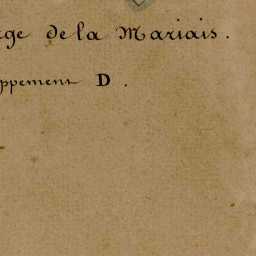 age de la Mariais.
ppement D.